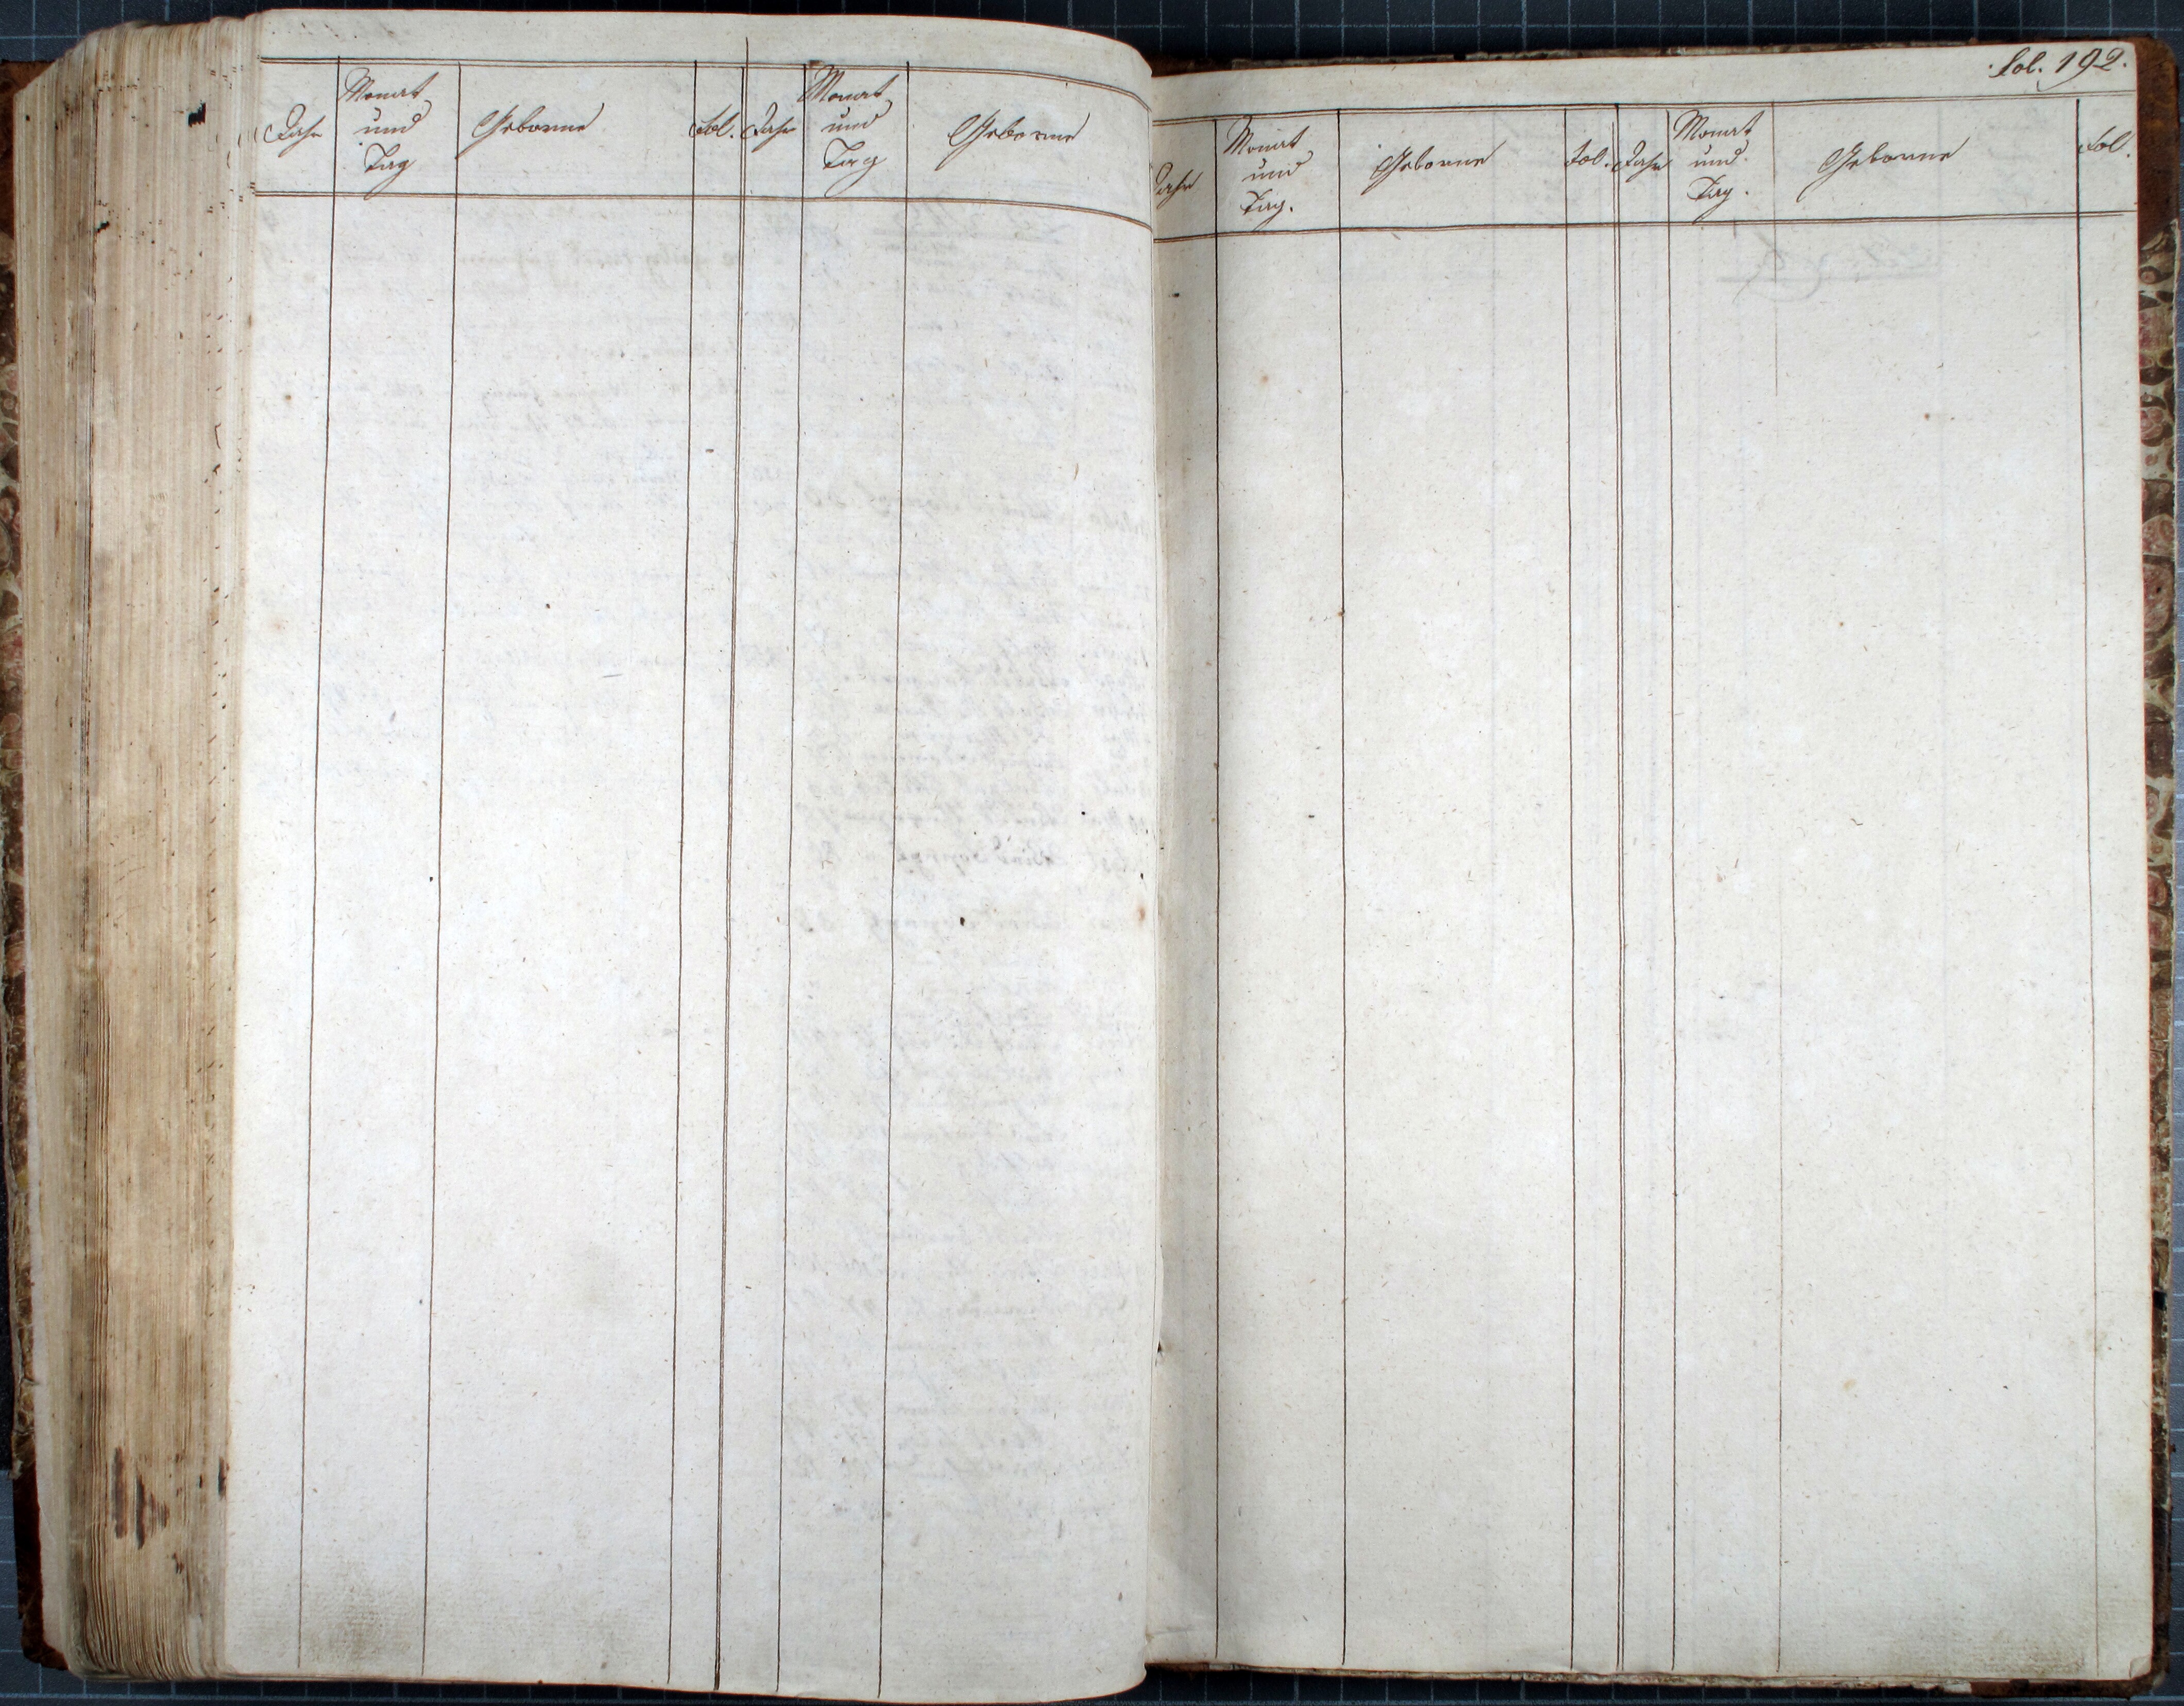 Jahr
Monat
und
Tag
Geborne
Fol.
Jahr
Monat
und
Tag
Geborne
fol. 192.
Jahr
Monat
und
Tag.
Geborne
Fol.
Jahr
Monat
und
Tag.
Geborne
Fol.